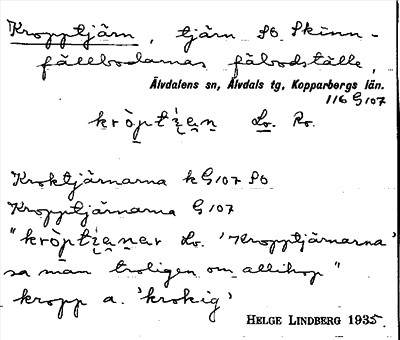 Kropptjärn, tjärn SO Skinn-
fällbodarnas fäbodställe,
Älvdalens sn, Älvdals tg, Kopparbergs län.
116 G 107
krὸptiεn Lo. Ro.
Kroktjärnarna k G 107 SO
Kropptjärnarna G 107
"krὸptiεnar Lo. 'Kropptjärnarna'
sa man troligen om allihop"
kropp a. 'krokig'
HELGE LINDBERG 1935.